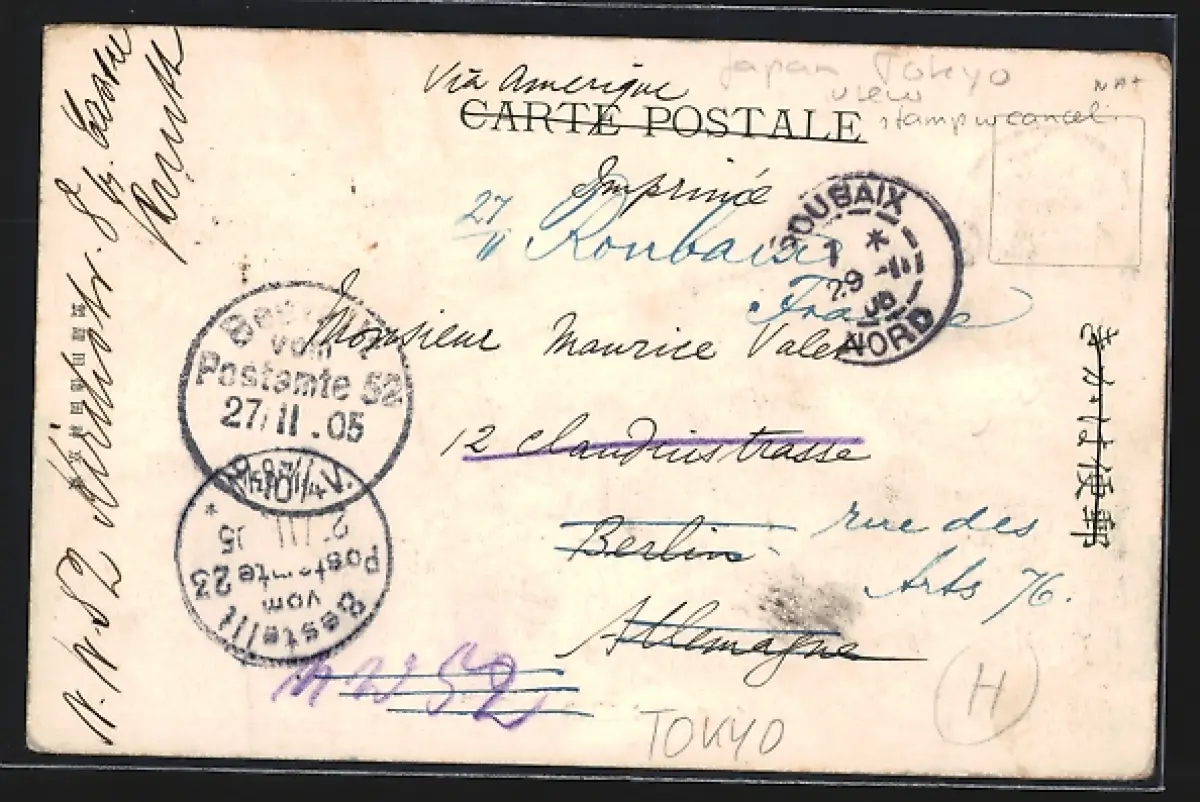 Via Amerique
Japan Tokyo
view
stamp w cancel.
CARTE POSTALE
Imprimé
27
11
Roubaix
France
ROUBAIX
NORD
Monsieur Maurice
12 Claudiusstrasse
Berlin
Allemagne
rue des
Arts 76.
Bestellt
vom
Postamte 52
27/11.05
Bestellt
vom
Postamte 23
N.W. 52
N W 52
TOKYO
H
きがは便郵